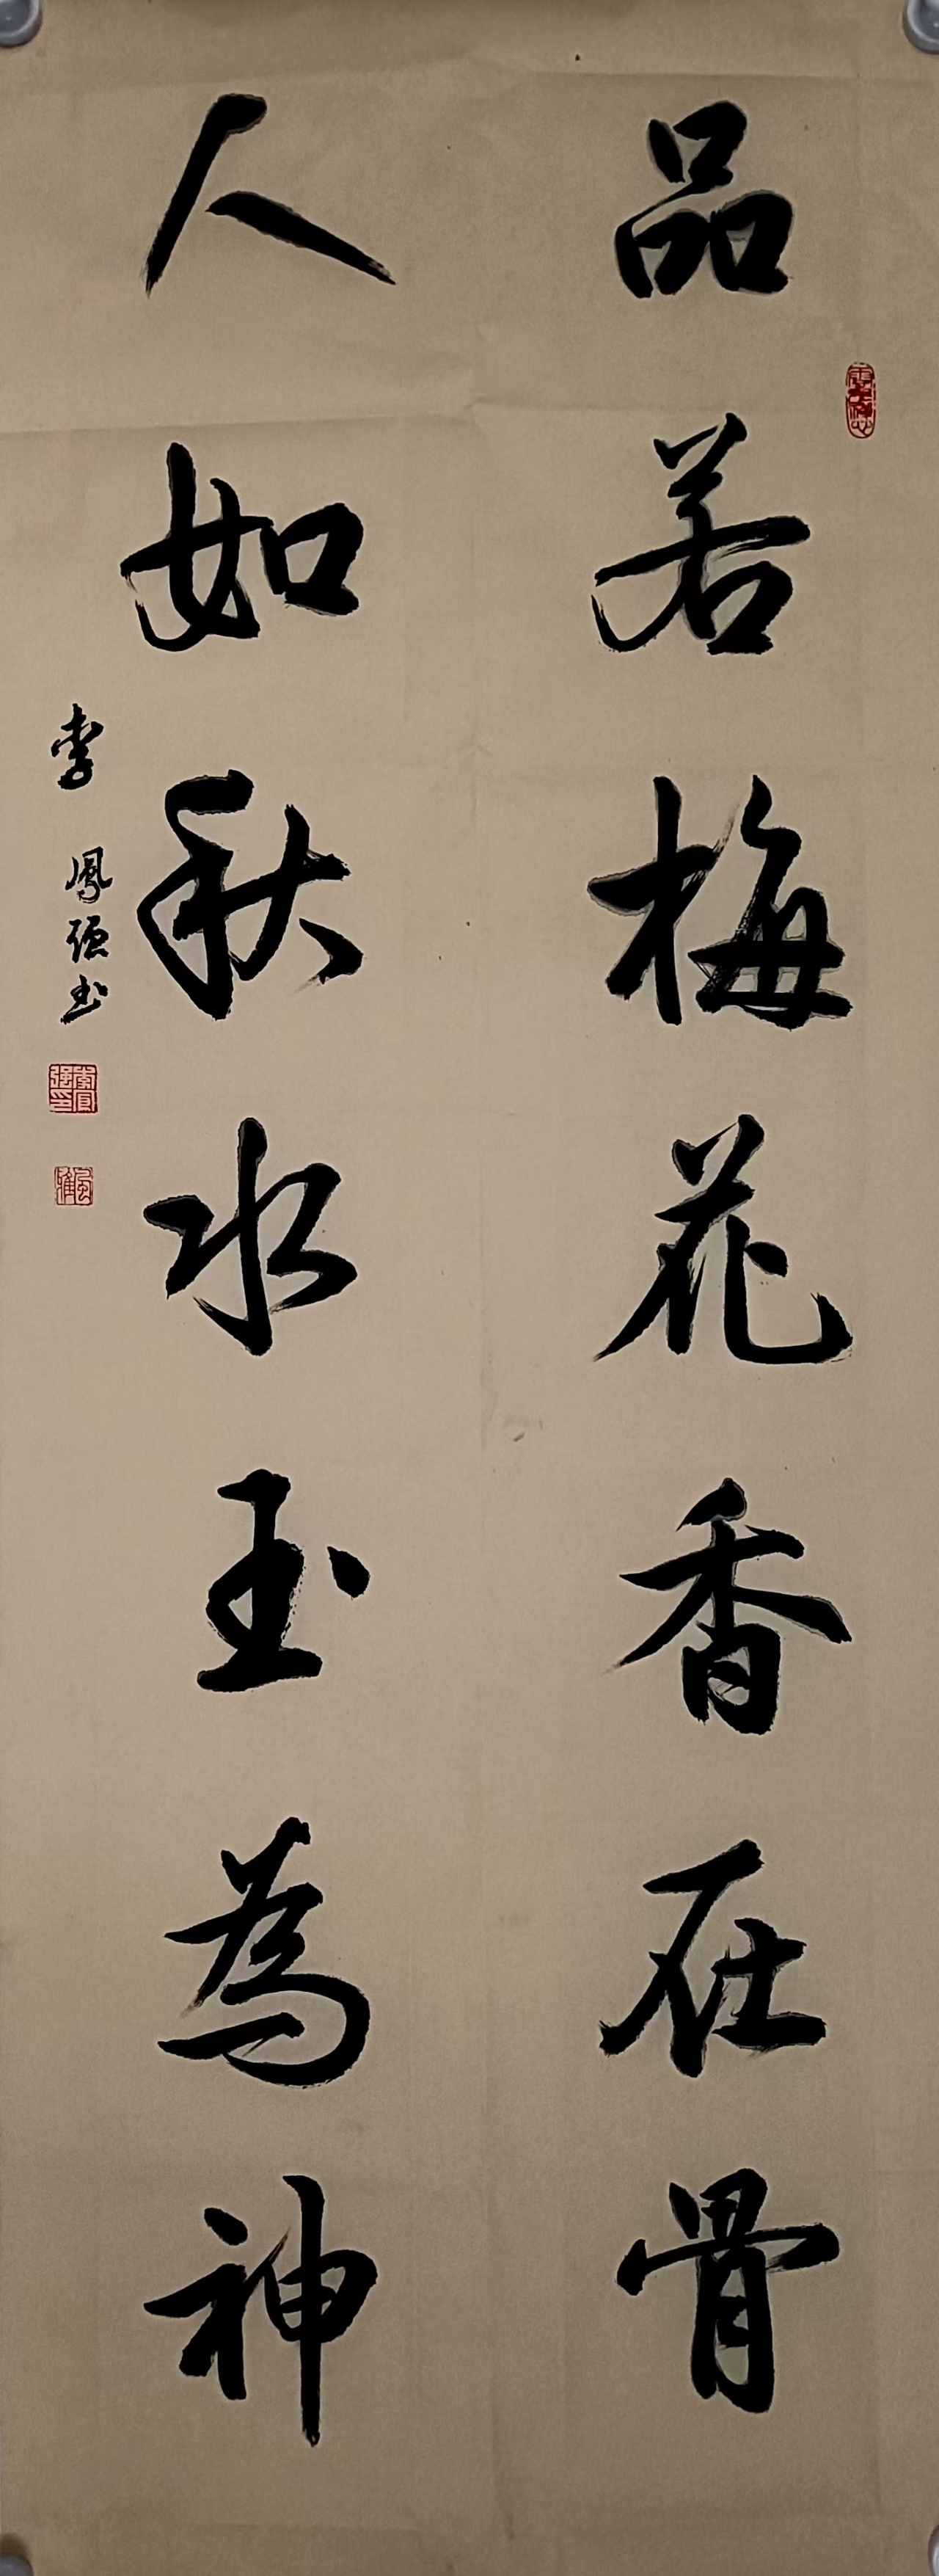 品若梅花香在骨
人如秋水玉為神
李鳳强书